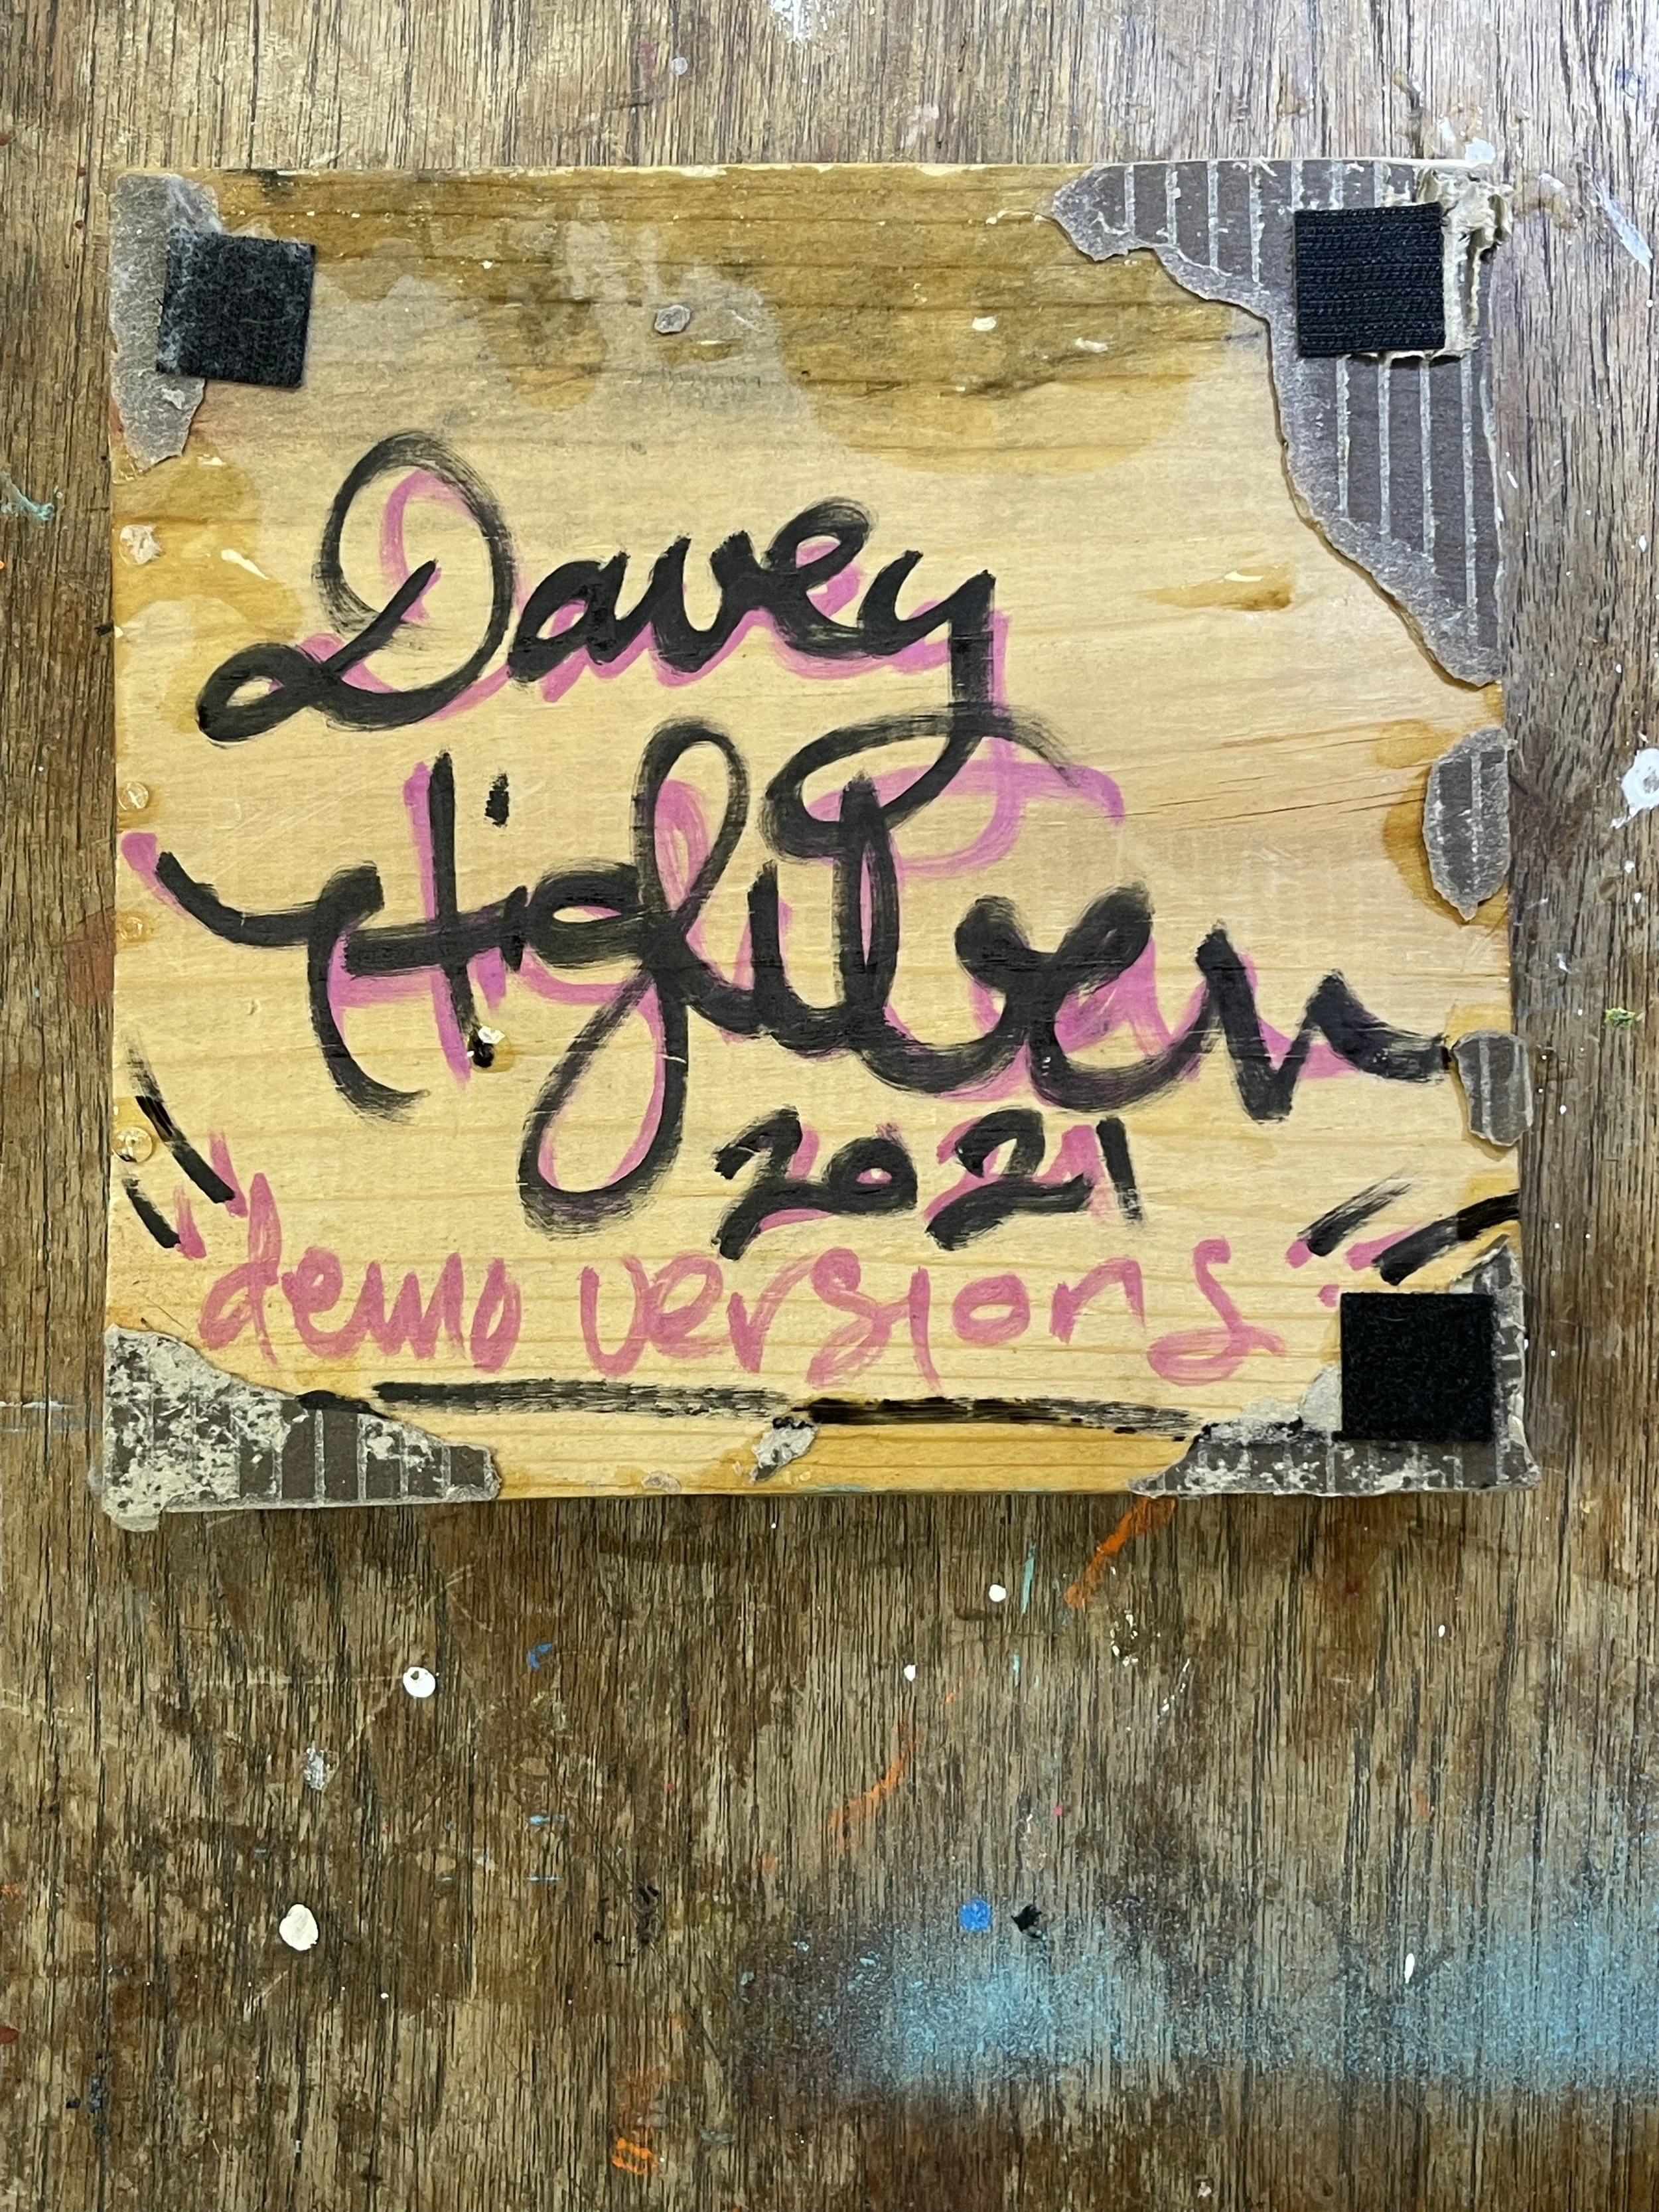 Davey
2021
"demo versions"